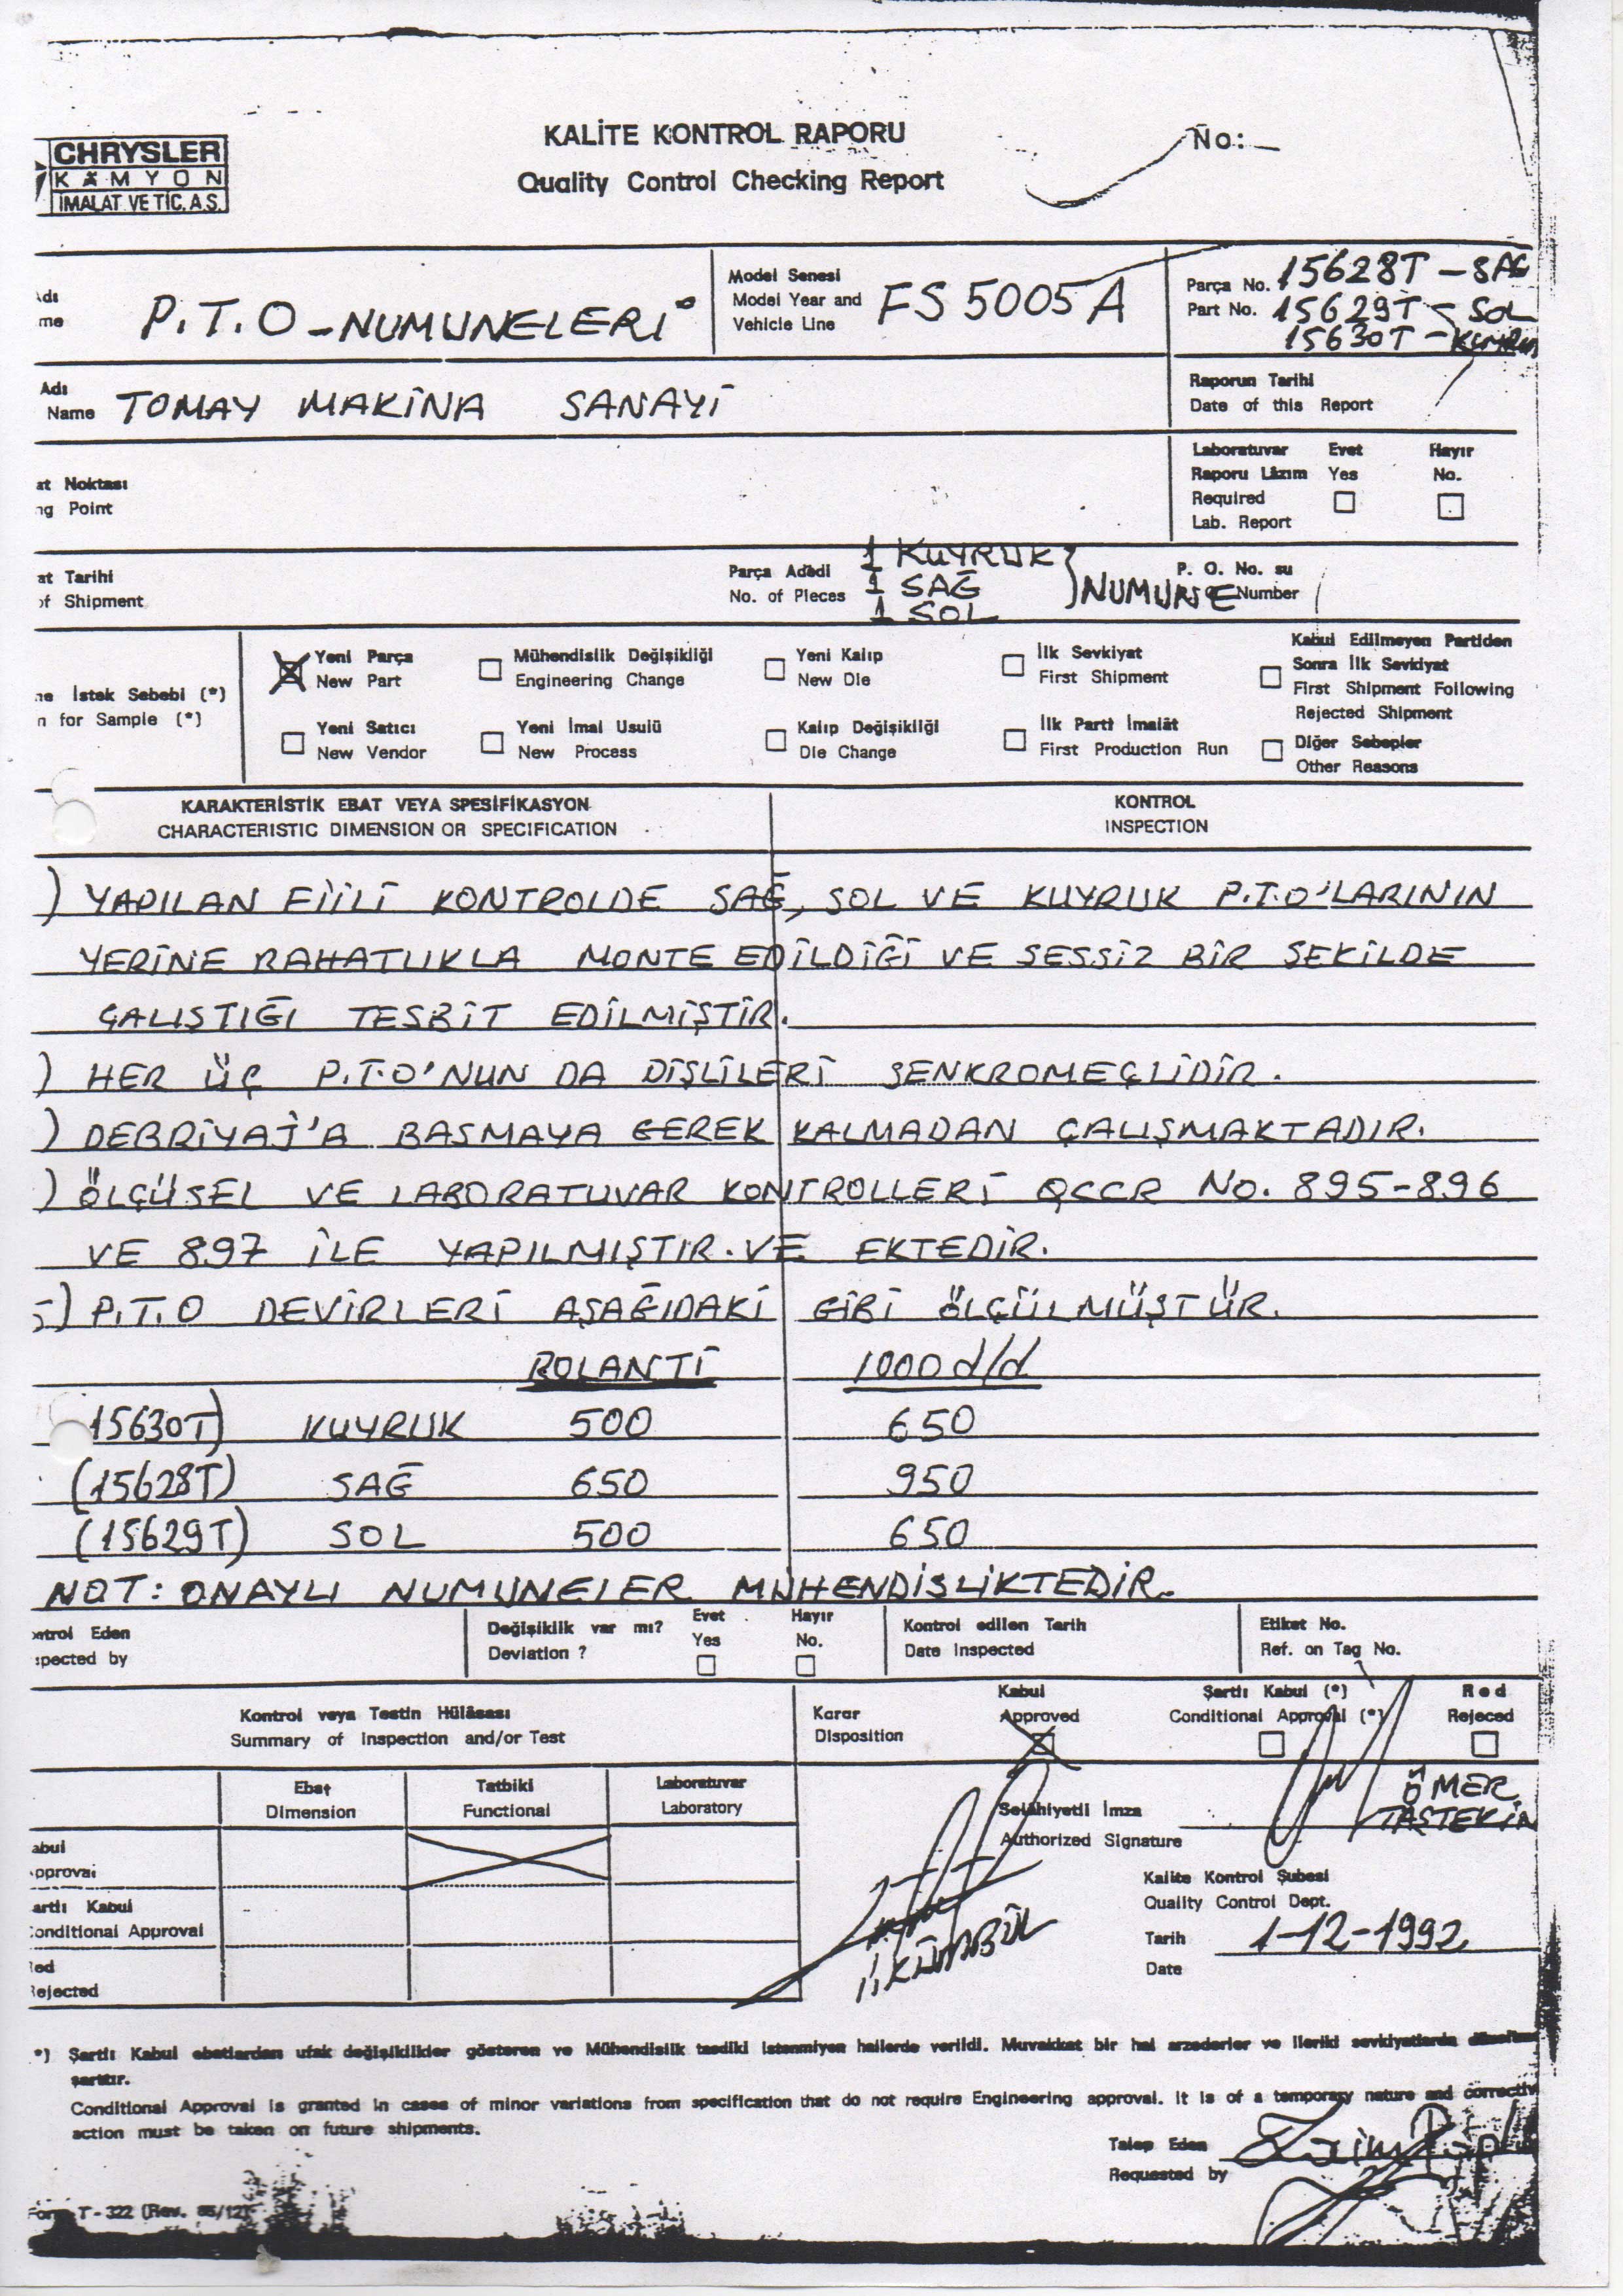 CHRYSLER
KAMYON
İMALAT VE TİC. A.S.
KALİTE KONTROL RAPORU
Quality Control Checking Report
No:
Adı
me
P.T.O - NUMUNELERİ
Model Senesi
Model Year and
Vehicle Line
FS 5005 A
Parça No.
Part No.
15628T - SAĞ
15629T - SOL
15630T -
Adı
Name
TOMAY MAKİNA SANAYİ
Raporun Tarihi
Date of this Report
at Noktası
ng Point
Laboratuvar Evet Hayır
Raporu Lâzım Yes No.
Required
Lab. Report
at Tarihi
of Shipment
Parça Adedi
No. of Pieces
1 KUYRUK
1 SAĞ
1 SOL
NUMUNE
P. O. No. su
Number
ne İstek Sebebi (*)
n for Sample (*)
Yeni Parça
New Part
Mühendislik Değişikliği
Engineering Change
Yeni Kalıp
New Die
İlk Sevkiyat
First Shipment
Kabul Edilmeyen Partiden
Sonra İlk Sevkiyat
First Shipment Following
Rejected Shipment
Yeni Satıcı
New Vendor
Yeni İmal Usulü
New Process
Kalıp Değişikliği
Die Change
İlk Parti İmalât
First Production Run
Diğer Sebepler
Other Reasons
KARAKTERİSTİK EBAT VEYA SPESİFİKASYON
CHARACTERISTIC DIMENSION OR SPECIFICATION
KONTROL
INSPECTION
) YAPILAN FİİLİ KONTROLDE SAĞ, SOL VE KUYRUK P.T.O'LARININ
YERİNE RAHATLIKLA MONTE EDİLDİĞİ VE SESSİZ BİR ŞEKİLDE
ÇALIŞTIĞI TESBİT EDİLMİŞTİR.
) HER ÜÇ P.T.O'NUN DA DİŞLİLERİ SENKROMEÇLİDİR.
) DEBRİYAJ'A BASMAYA GEREK KALMADAN ÇALIŞMAKTADIR.
) ÖLÇÜSEL VE LABORATUVAR KONTROLLERİ QCCR No. 895-896
VE 897 İLE YAPILMIŞTIR. VE EKTEDİR.
5) P.T.O DEVİRLERİ AŞAĞIDAKİ GİBİ ÖLÇÜLMÜŞTÜR.
ROLANTİ 1000 d/d
15630T) KUYRUK 500 650
(15628T) SAĞ 650 950
(15629T) SOL 500 650
NOT: ONAYLI NUMUNELER MÜHENDİSLİKTEDİR.
ntrol Eden
spected by
Değişiklik var mı?
Deviation ?
Evet
Yes
Hayır
No.
Kontrol edilen Tarih
Date Inspected
Etiket No.
Ref. on Tag No.
Kontrol veya Testin Hülâsası
Summary of Inspection and/or Test
Karar
Disposition
Kabul
Approved
Şartlı Kabul (*)
Conditional Approval (*)
Red
Rejeced
Ebat
Dimension
Tatbiki
Functional
Laboratuvar
Laboratory
abul
pproval
artlı Kabul
onditional Approval
ed
Rejected
Selâhiyetli İmza
Authorized Signature
ÖMER
TAŞTEKİN
Kalite Kontrol Şubesi
Quality Control Dept.
Tarih
Date
1-12-1992
*) Şartlı Kabul ebatlardan ufak değişiklikler gösteren ve Mühendislik tasdiki istenmiyen hallerde verildi. Muvakkat bir hal arzederler ve ileriki sevkiyatlarda
şarttır.
Conditional Approval is granted in cases of minor variations from specification that do not require Engineering approval. It is of a temporary nature and correctiv
action must be taken on future shipments.
Talep Eden
Requested by
Form T - 322 (Rev. 86/12)